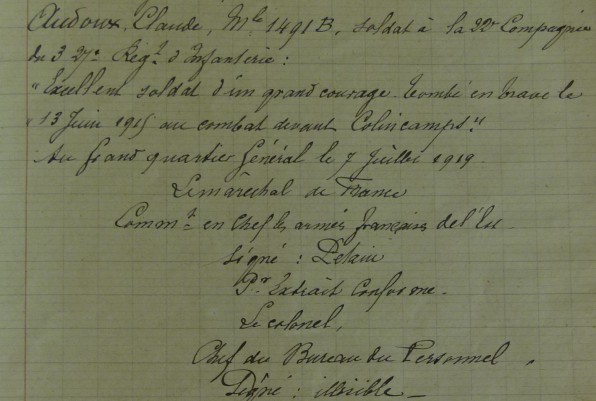 Audoux, Claude, Mle 1491 B, soldat à la 22e Compagnie
du 327e Régt. d'Infanterie :
"Excellent soldat d'un grand courage. Tombé en brave le
13 Juin 1915 au combat devant Colincamps."
Au Grand quartier Général le 7 Juillet 1919.
Le maréchal de France
Commt. en Chef les armées françaises de l'Est
Signé : Pétain
Pr. Extrait Conforme.
Le colonel,
Chef du Bureau du Personnel,
Signé : illisible